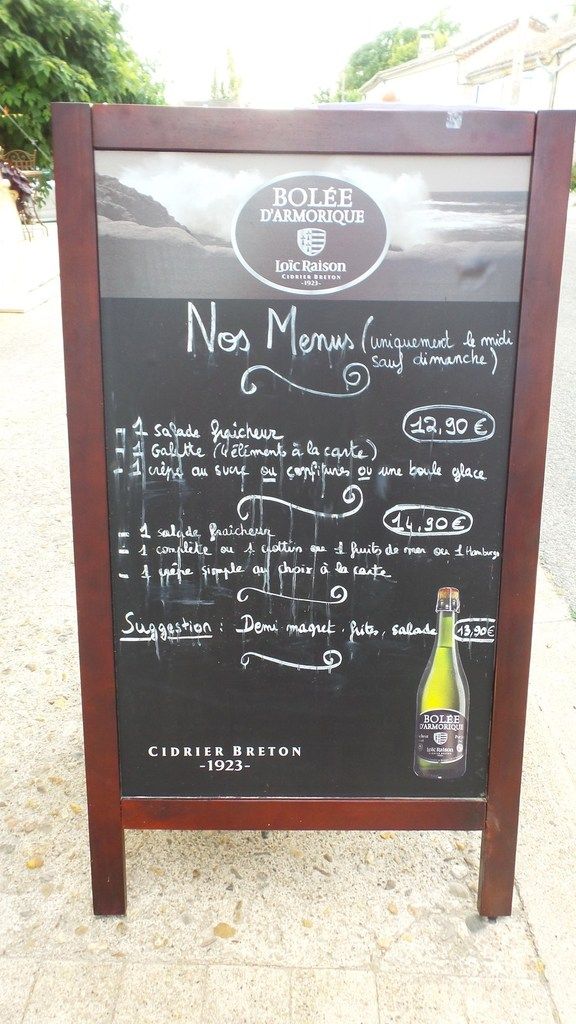 BOLÉE
D'ARMORIQUE
Loïc Raison
CIDRIER BRETON
-1923-
Nos Menus (uniquement le midi
sauf dimanche)
12,90 €
- 1 salade fraîcheur
- 1 Galette ( éléments à la carte)
- 1 crêpe au sucre ou confitures ou une boule glace
14,90 €
- 1 salade fraîcheur
- 1 complète ou 1 crottin ou 1 fruits de mer ou 1 Hamburg
- 1 crêpe simple au choix à la carte
Suggestion : Demi magret, frites, salade 13,90€
BOLÉE
D'ARMORIQUE
Loïc Raison
CIDRIER BRETON
-1923-